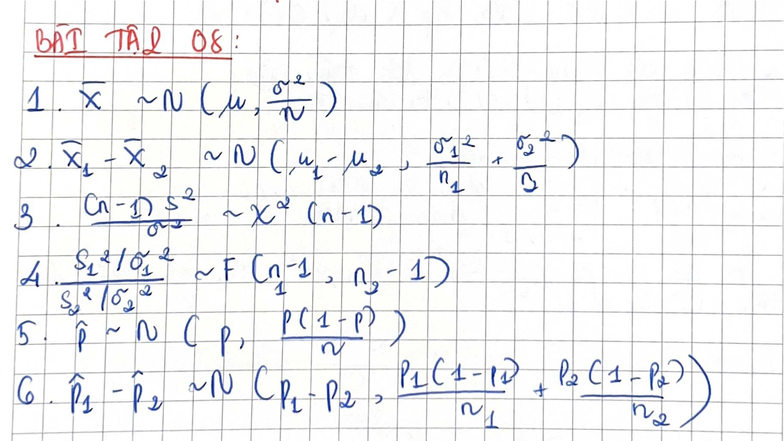 BÀI TẬP 08:
1. x̄ ~ N (μ, σ²/n)
2. x̄₁ - x̄₂ ~ N (μ₁ - μ₂, σ₁²/n₁ + σ₂²/n)
3. (n-1) S²/σ² ~ χ² (n-1)
4. (S₁²/σ₁²)/(S₂²/σ₂²) ~ F (n₁-1, n₂-1)
5. p̂ ~ N (p, p(1-p)/n)
6. p̂₁ - p̂₂ ~ N (p₁ - p₂, p₁(1-p₁)/n₁ + p₂(1-p₂)/n₂)